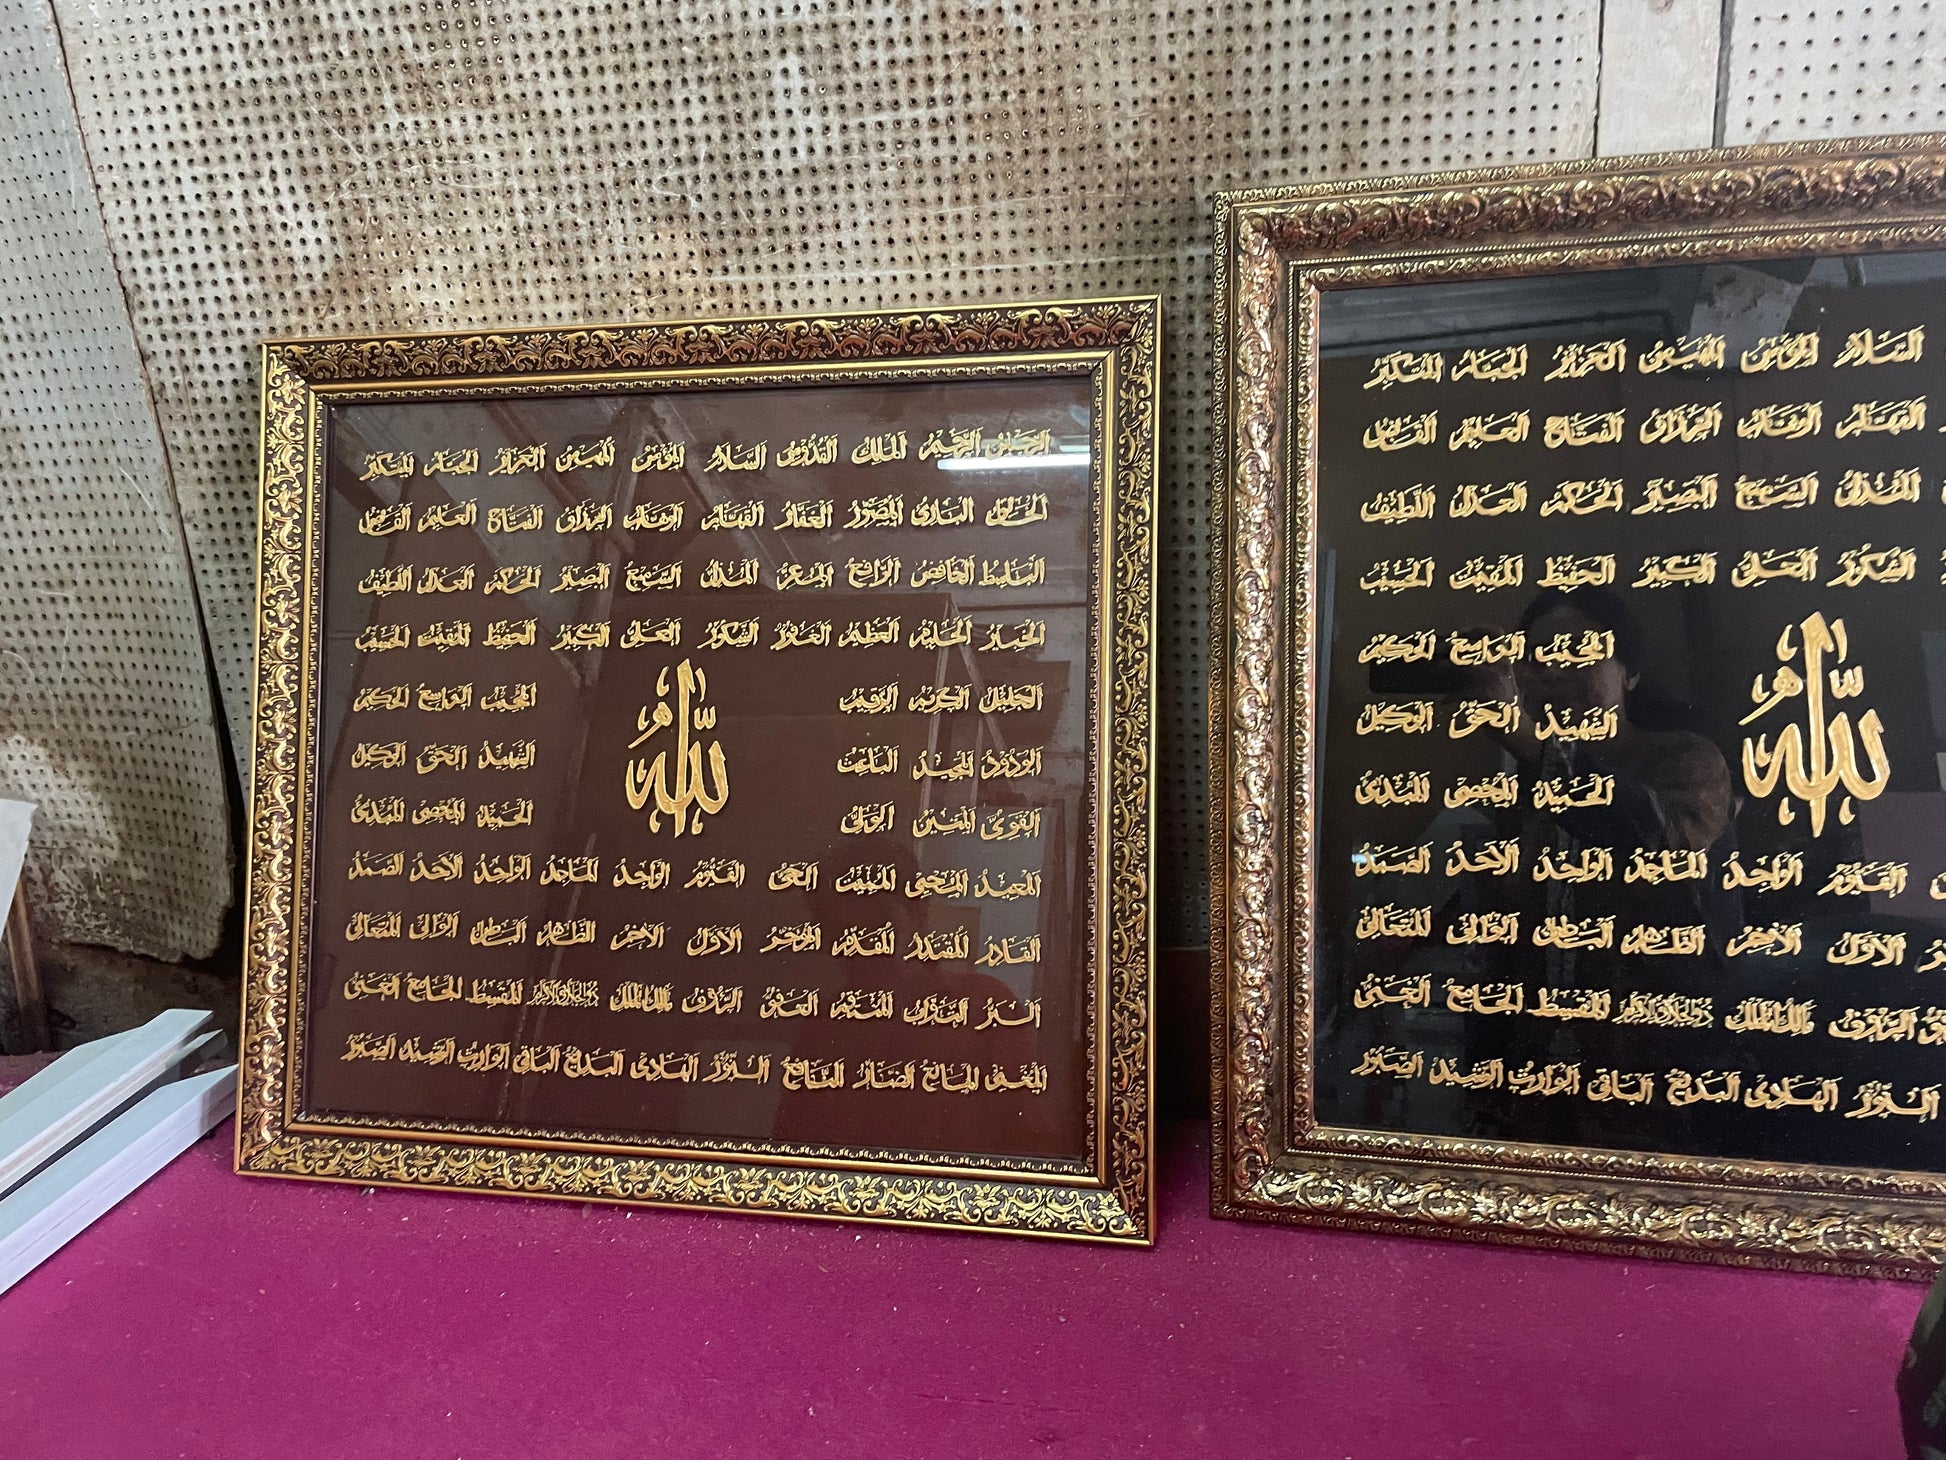 الرحمن الرحيم الملك القدوس السلام المؤمن المهيمن العزيز الجبار المتكبر
الخالق البارئ المصور الغفار القهار الوهاب الرزاق الفتاح العليم القابض
الباسط الخافض الرافع المعز المذل السميع البصير الحكم العدل اللطيف
الخبير الحليم العظيم الغفور الشكور العلي الكبير الحفيظ المقيت الحسيب
الجليل الكريم الرقيب المجيب الواسع الحكيم
الودود المجيد الباعث الشهيد الحق الوكيل
الله
القوي المتين الولي الحميد المحصي المبدئ
المعيد المحيي المميت الحي القيوم الواجد الماجد الواحد الأحد الصمد
القادر المقتدر المقدم المؤخر الأول الآخر الظاهر الباطن الوالي المتعالي
البر التواب المنتقم العفو الرؤوف مالك الملك ذو الجلال والإكرام المقسط الجامع الغني
المغني المانع الضار النافع النور الهادي البديع الباقي الوارث الرشيد الصبور
السلام المؤمن المهيمن العزيز الجبار المتكبر
القهار الوهاب الرزاق الفتاح العليم القابض
المذل السميع البصير الحكم العدل اللطيف
الشكور العلي الكبير الحفيظ المقيت الحسيب
المجيب الواسع الحكيم
الشهيد الحق الوكيل
الله
الحميد المحصي المبدئ
القيوم الواجد الماجد الواحد الأحد الصمد
الأول الآخر الظاهر الباطن الوالي المتعالي
الرؤوف مالك الملك ذو الجلال والإكرام المقسط الجامع الغني
النور الهادي البديع الباقي الوارث الرشيد الصبور